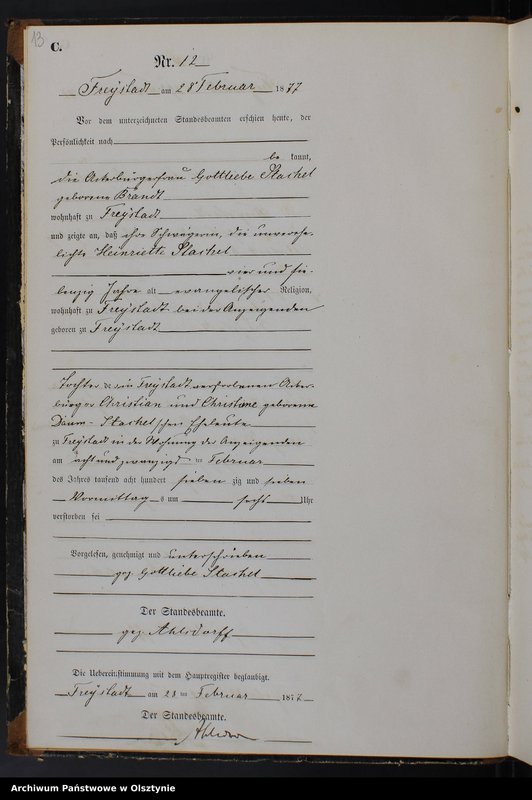 13
C.
Nr. 12
Freystadt am 28 Februar 1877
Vor dem unterzeichneten Standesbeamten erschien heute, der
Persönlichkeit nach
be kannt,
die Ackerbürgerfrau Gottliebe Stachel
geborene Brandt
wohnhaft zu Freystadt
und zeigte an, daß ihre Schwägerin, die unverehe-
lichte Heinriette Stachel
vier und sie-
benzig Jahre alt evangelischer Religion,
wohnhaft zu Freystadt bei der Anzeigenden
geboren zu Freystadt
Tochter de r in Freystadt verstorbenen Acker-
bürger Christian und Christine geborene
Daum - Stachelschen Eheleute
zu Freystadt in der Wohnung der Anzeigenden
am acht und zwanzigsten Februar
des Jahres tausend acht hundert sieben zig und sieben
Vormittag s um sechs Uhr
verstorben sei
Vorgelesen, genehmigt und unterschrieben
gez. Gottliebe Stachel
Der Standesbeamte.
gez. Ahlsdorff
Die Uebereinstimmung mit dem Hauptregister beglaubigt.
Freystadt am 28 ten Februar 1877
Der Standesbeamte.
Archiwum Państwowe w Olsztynie